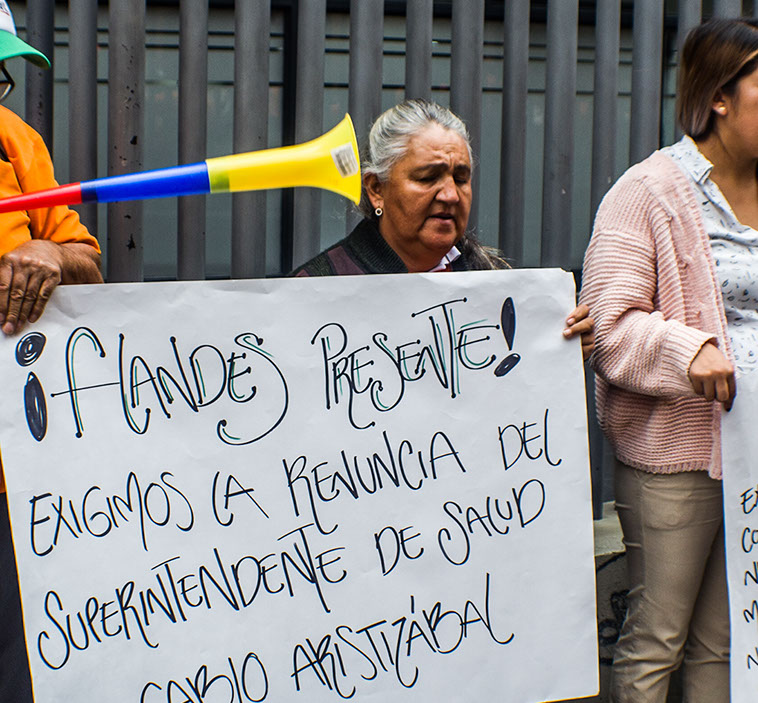 ¡Flandes Presente!
Exigimos la renuncia del
Superintendente de Salud
Fabio Aristizábal